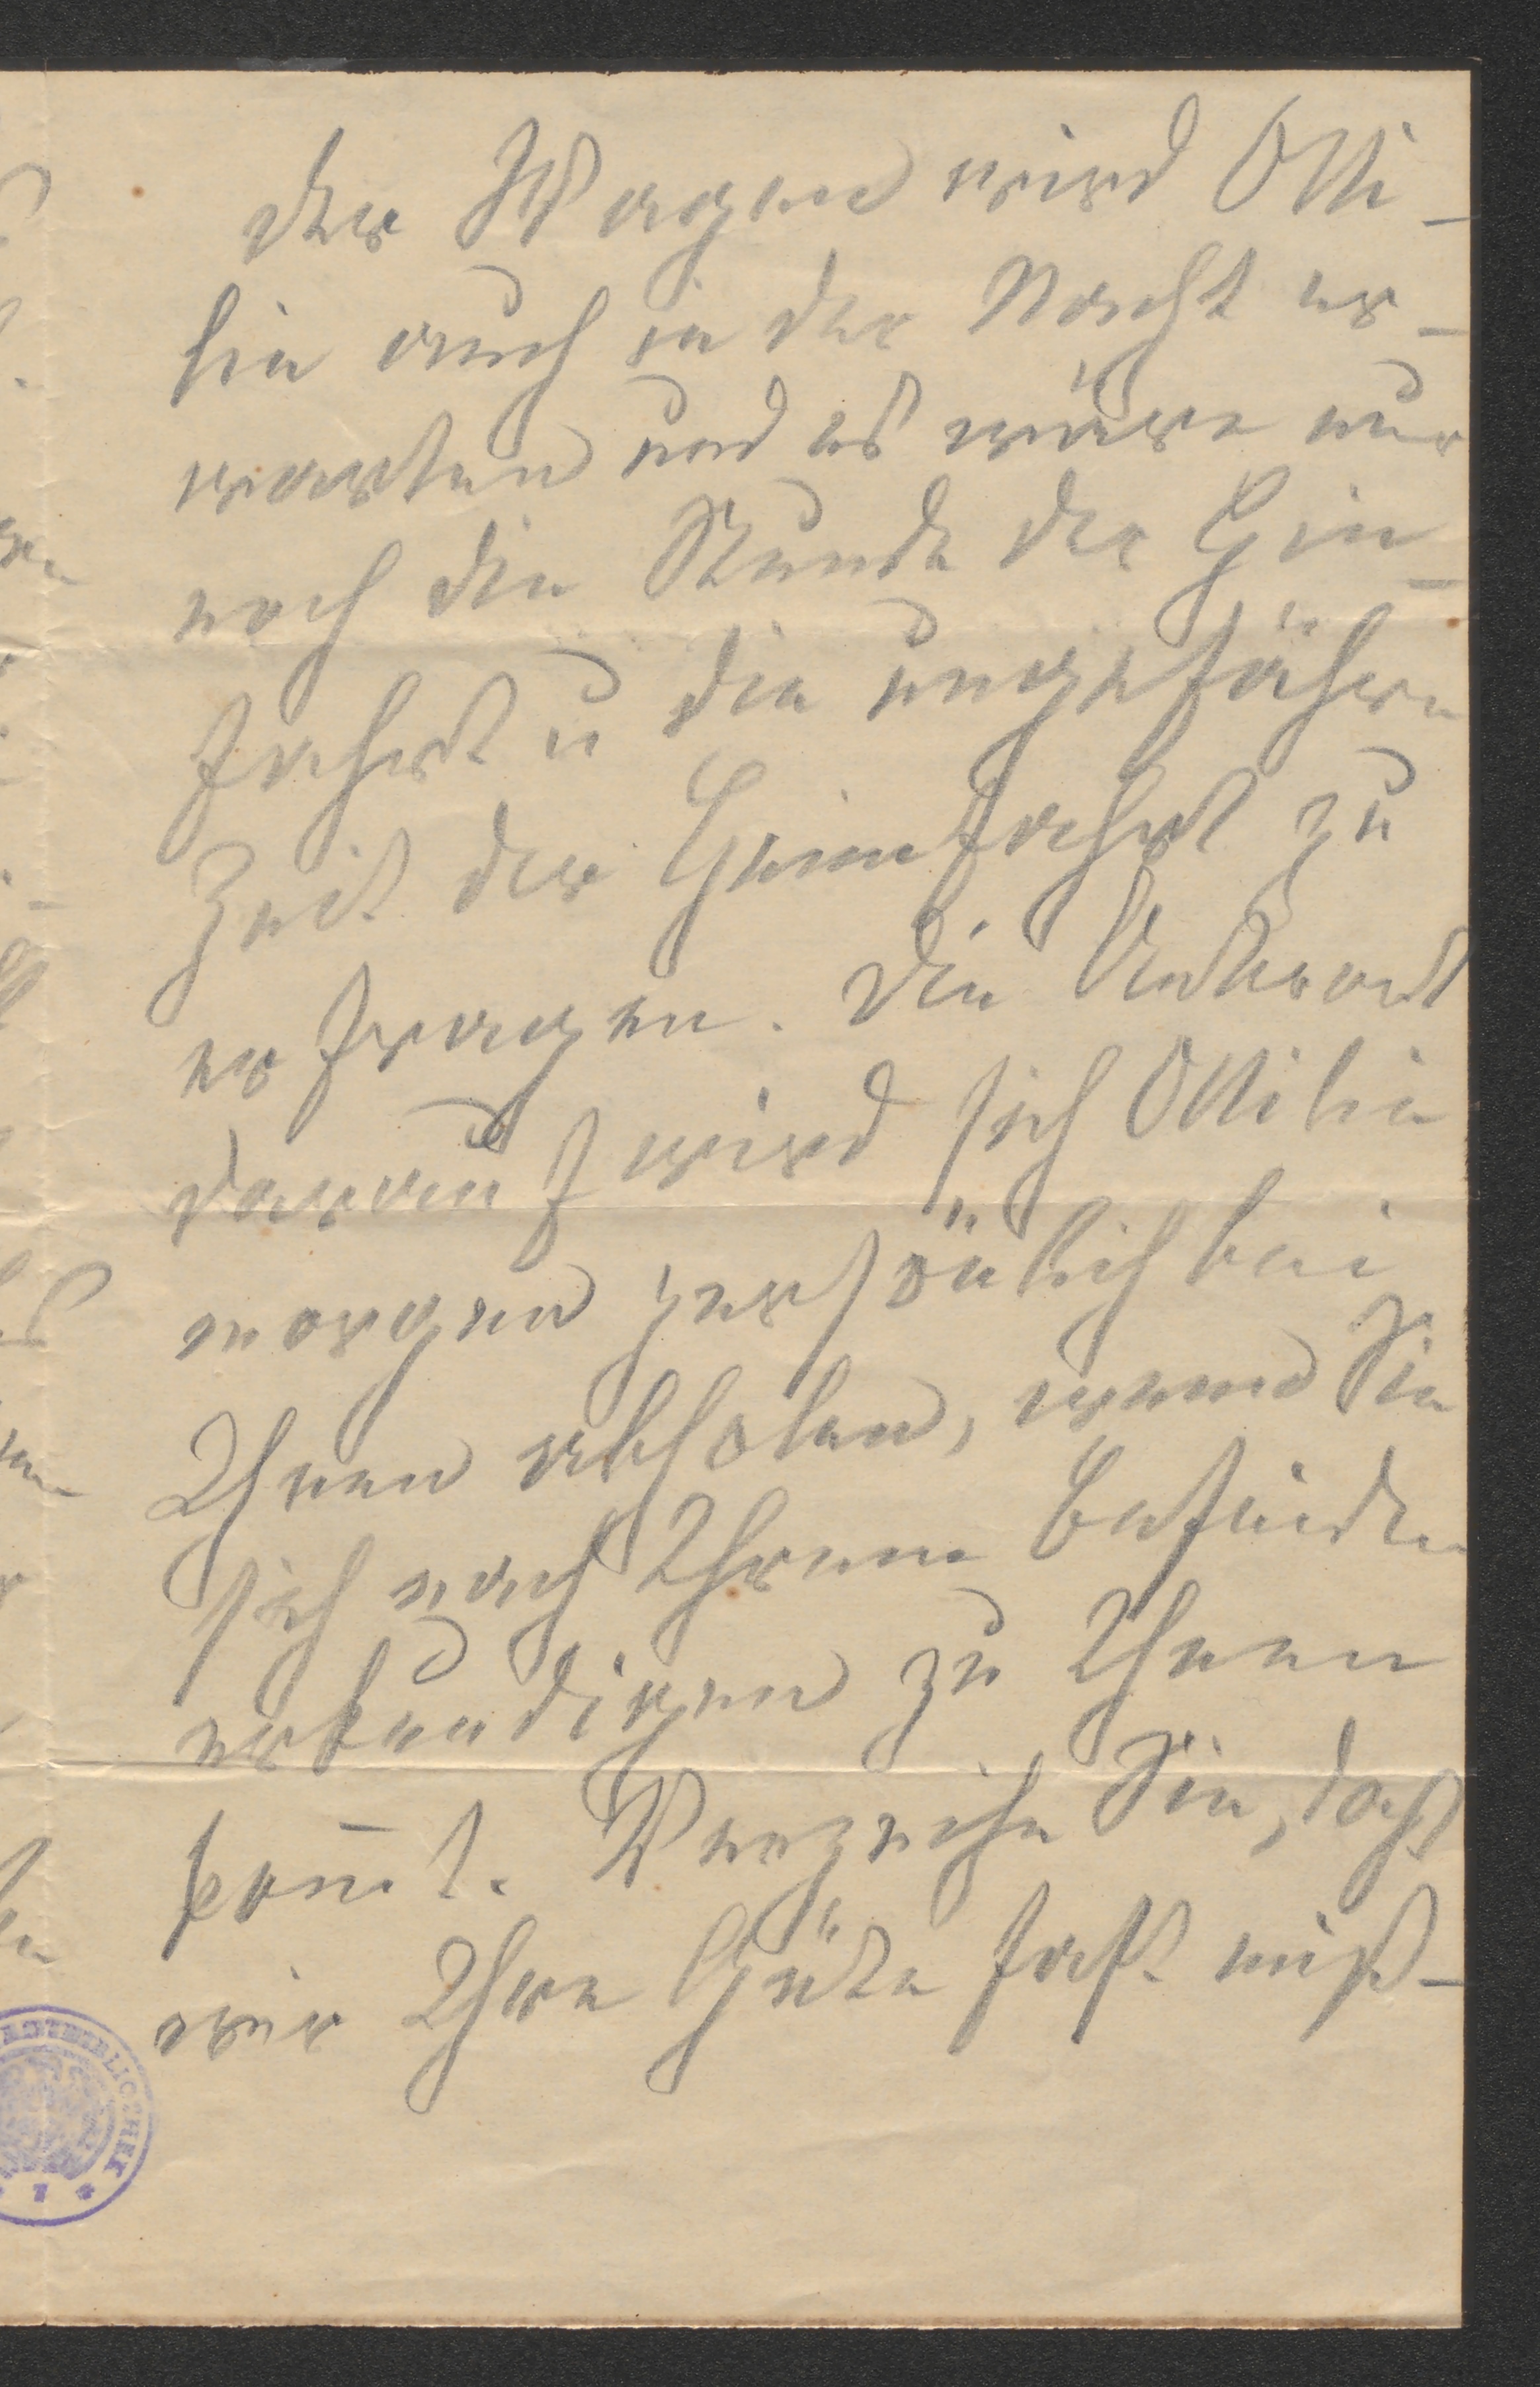 Der Wagen wird Otti-
lie auch in der Nacht er-
warten und es wäre nur
noch die Stunde der Hin-
fahrt u die ungefähre
Zeit der Heimfahrt zu
erfragen. Die Antwort
darauf wird sich Ottilie
morgen persönlich bei
Ihnen abholen, wenn Sie
sich nach Ihrem Befinden
erkundigen zu Ihnen
kom̄t. Verzeihe Sie, daß
wir Ihre Güte fast miß-